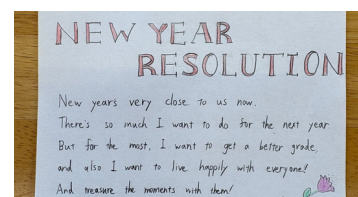 NEW YEAR
RESOLUTION
New years very close to us now.
There's so much I want to do for the next year
But for the most, I want to get a better grade,
and also I want to live happily with everyone!
And treasure the moments with them!